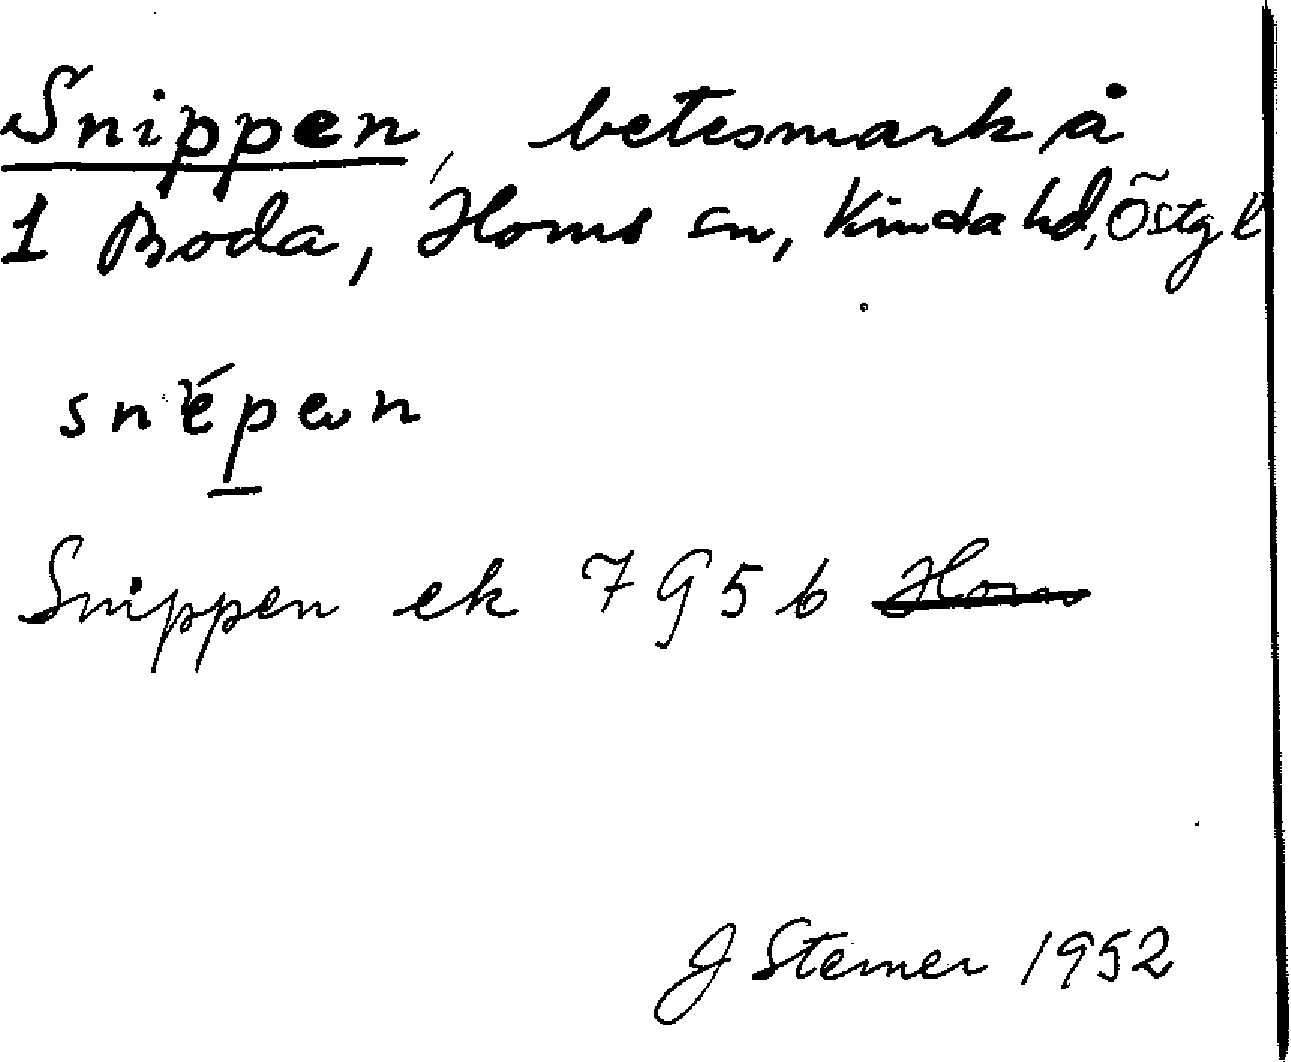 Snippen, betesmark å
1 Boda, Horns sn, Kinda hd, Östgl
snépen
Snippen ek 795 b Horns
J Sterner 1952